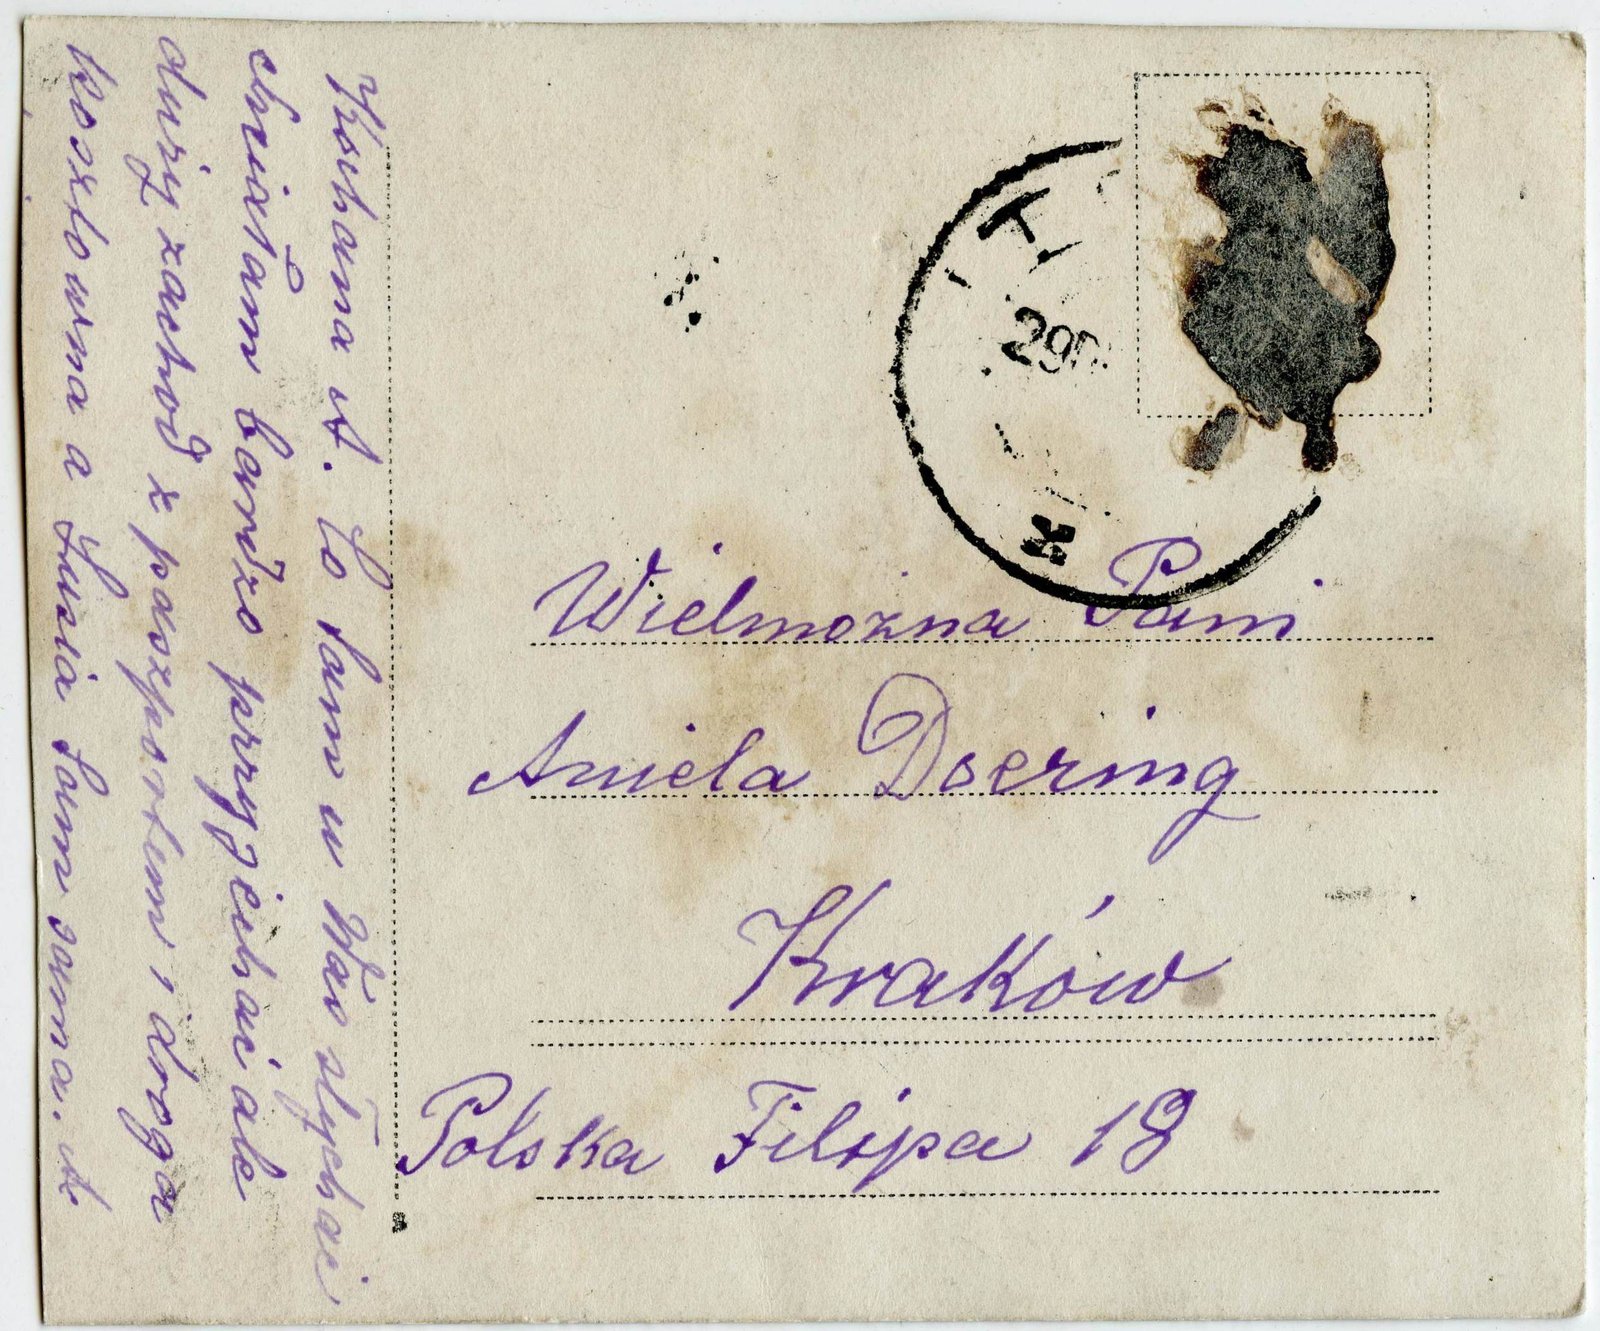 Kochana A. Co tam u Was słychać
chciałam bardzo przyjechać ale
duży zachod z paszportem i droga
kosztowna a Lusia sama. A.
T.
29
Wielmożna Pani
Aniela Doering
Kraków
Polska Filipa 18